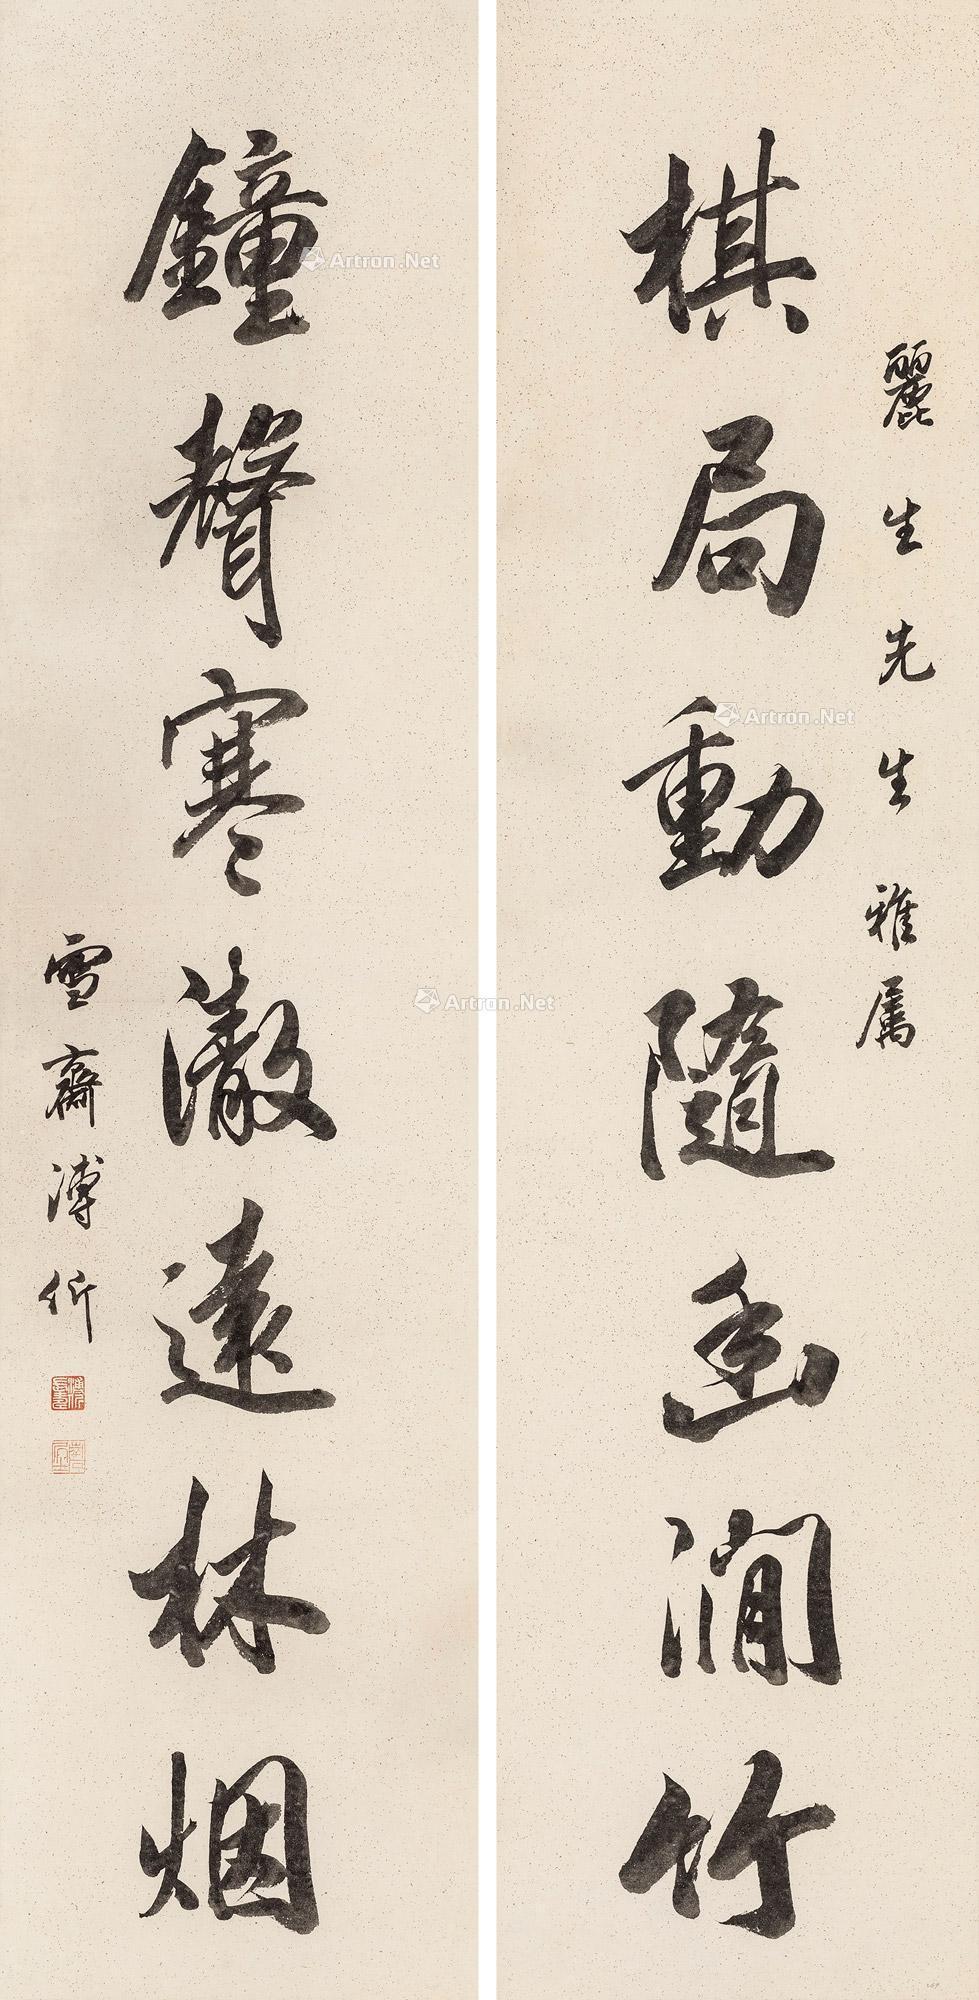 麗生先生雅属
棋局動隨幽澗竹
鐘聲寒澈遠林烟
雪齋溥伒
Artron.Net
Artron.Net
Artron.Net